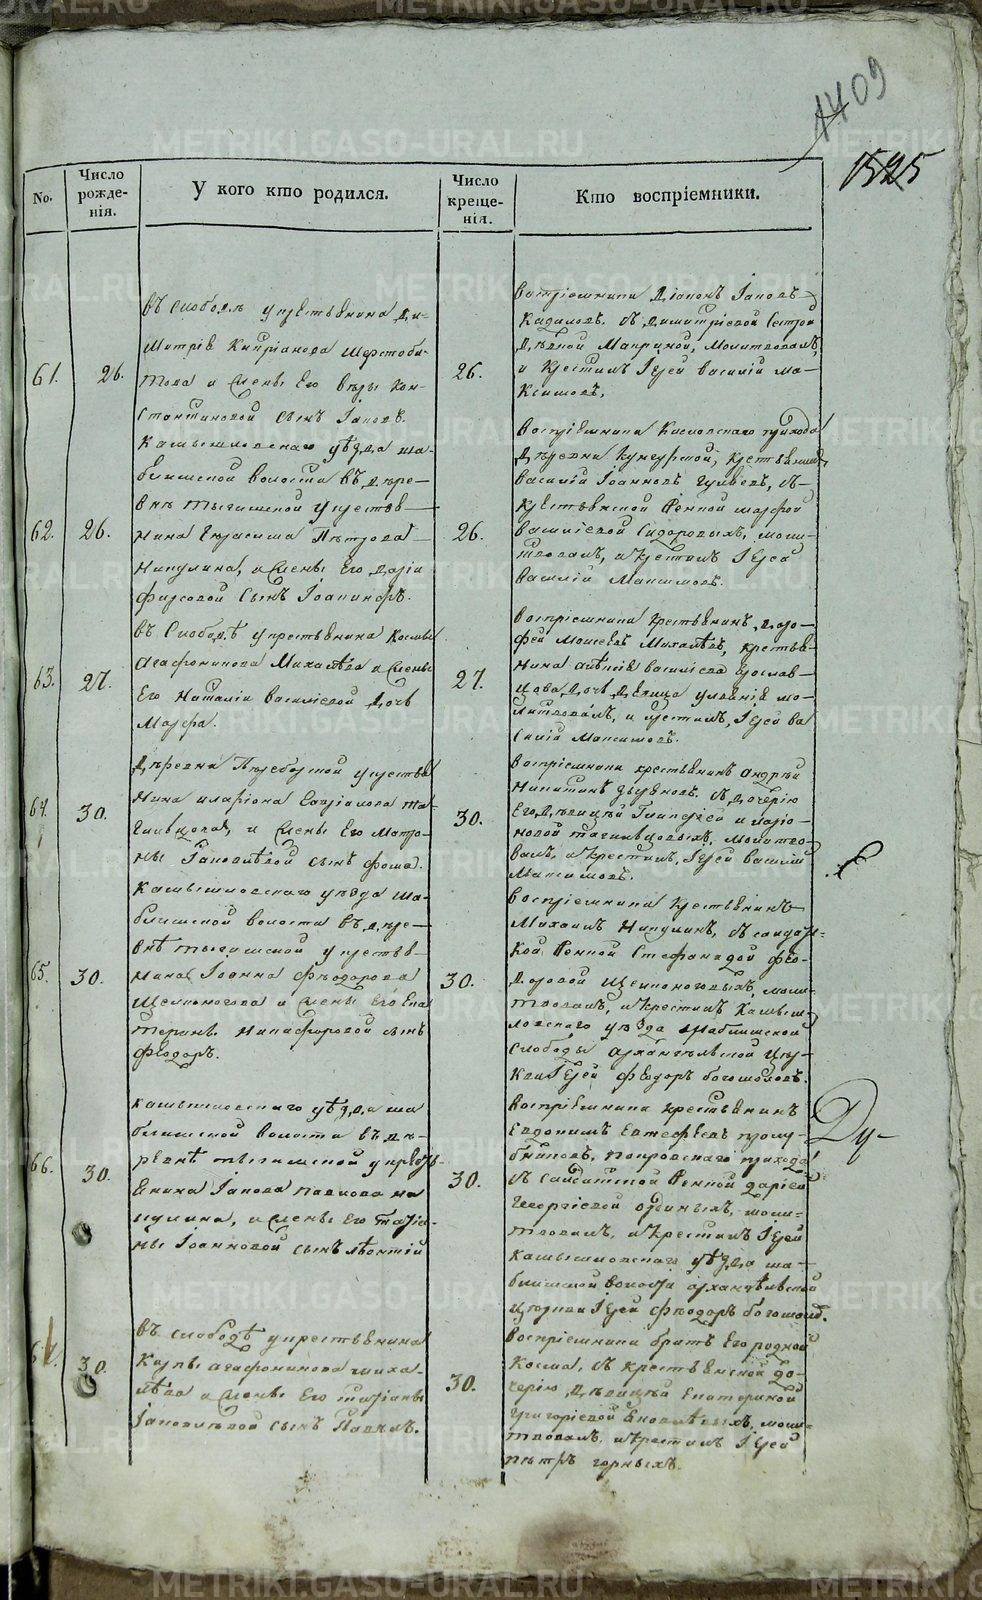 1409
1525
No.
Число рожде-
нія.
У кого кто родился.
Число креще-
нія.
Кто воспріемники.
61.
26.
въ слободѣ у крестьянина Ди-
митрія Кипріанова Шерстоби-
това и жены Его вѣры Кон-
стантиновой сынъ Іаковъ.
26.
воспріемники Діаконъ Іаковъ
Кадиловъ, съ Димитріевой сестрой
Дѣвкой Мариной, молитвовалъ,
и крестилъ Іерей василій ма-
ксимовъ.
62.
26.
Камышловскаго уѣзда ша-
блишской волости въ дере-
внѣ тыгишской у крестья-
нина Герасима Петрова
Никулина, и жены Его Дарьи
Фирсовой сынъ Іоанникій.
26.
воспріемники Кисловскаго прихода
Деревни Кунгурской, крестьянинъ
василій Іоанновъ, съ
крестьянской женкой марфой
василіевой Сидоровыхъ, моли-
твовалъ, и крестилъ Іерей
василій Максимовъ.
63.
27.
въ Слободѣ у крестьянина Космы
Агафоникова Михалева и жены
Его Наталіи василіевой дочь
Марфа.
27.
воспріемники крестьянинъ, Доро-
фей Моисеевъ Михалевъ, крестья-
нина алексія василіева
дочь Дѣвица уліанія мо-
литвовалъ, и крестилъ, Іерей ва-
силій Максимовъ.
64.
30.
Деревни Переборской у крестья
нина иларіона та-
гильцова, и жены Его Матро-
ны Іаковлевой сынъ фома.
30.
воспріемники крестьянинъ Андрей
Никитинъ Дьячковъ, съ Дочерію
Его, Дѣвицей Гликеріей иларіо-
новой тагильцовыхъ, молитво-
валъ, и крестилъ, Іерей василій
Максимовъ.
65.
30.
Камышловскаго уѣзда ша-
блишской волости въ дере-
внѣ тыгишской у крестья-
нина Іоанна феодорова
Щелконогова и жены Его Ека
терины Никифоровой сынъ
феодоръ.
30.
воспріемники крестьянинъ
Михаилъ Никулинъ, съ солдатс-
кой женкой Стефанидой фео-
доровой Щелконоговыхъ, моли-
твовалъ, и крестилъ Камыш-
ловскаго уѣзда шаблишской
слободы архангельской цер-
кви Іерей феодоръ богомоловъ.
66.
30.
Камышловскаго уѣзда ша
блишской волости въ де-
ревнѣ тыгишской у кресть-
янина Іакова павлова ни
кулина, и жены Его татіа-
ны Іоанновой сынъ леонтій
30.
воспріемники крестьянинъ
Евдокимъ Евтефеевъ
покровскаго прихода
съ солдатской женкой даріей
Георгіевой моли-
твовалъ, и крестилъ Іерей
Камышловскаго уѣзда ша-
блишской волости архангельской
церкви Іерей феодоръ богомол.
Ду-
30.
въ слободѣ у крестьянина
Карпа агафоникова миха-
лева и жены Его татіаны
Іаковлевой сынъ Павелъ.
30.
воспріемники братъ Его родной
Косма, съ крестьянской до-
черію Дѣвицей Екатериной
Григоріевой Яковлевыхъ, моли-
твовалъ, и крестилъ Іерей
петръ горныхъ.
METRIKI.GASO-URAL.RU